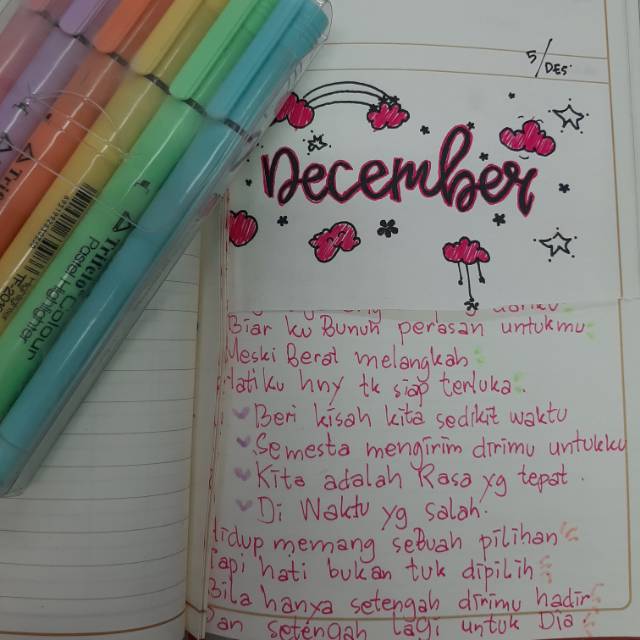 5/DES
December
Triflo Colour
Pastel Highlighter
Biar ku Bunuh perasan untukmu
Meski Berat melangkah
Hatiku hny tk siap terluka
Beri kisah kita sedikit waktu
Semesta mengirim dirimu untukku
Kita adalah Rasa yg tepat.
Di Waktu yg salah.
Hidup memang sebuah pilihan
Tapi hati bukan tuk dipilih
Bila hanya setengah dirimu hadir
Dan setengah lagi untuk Dia